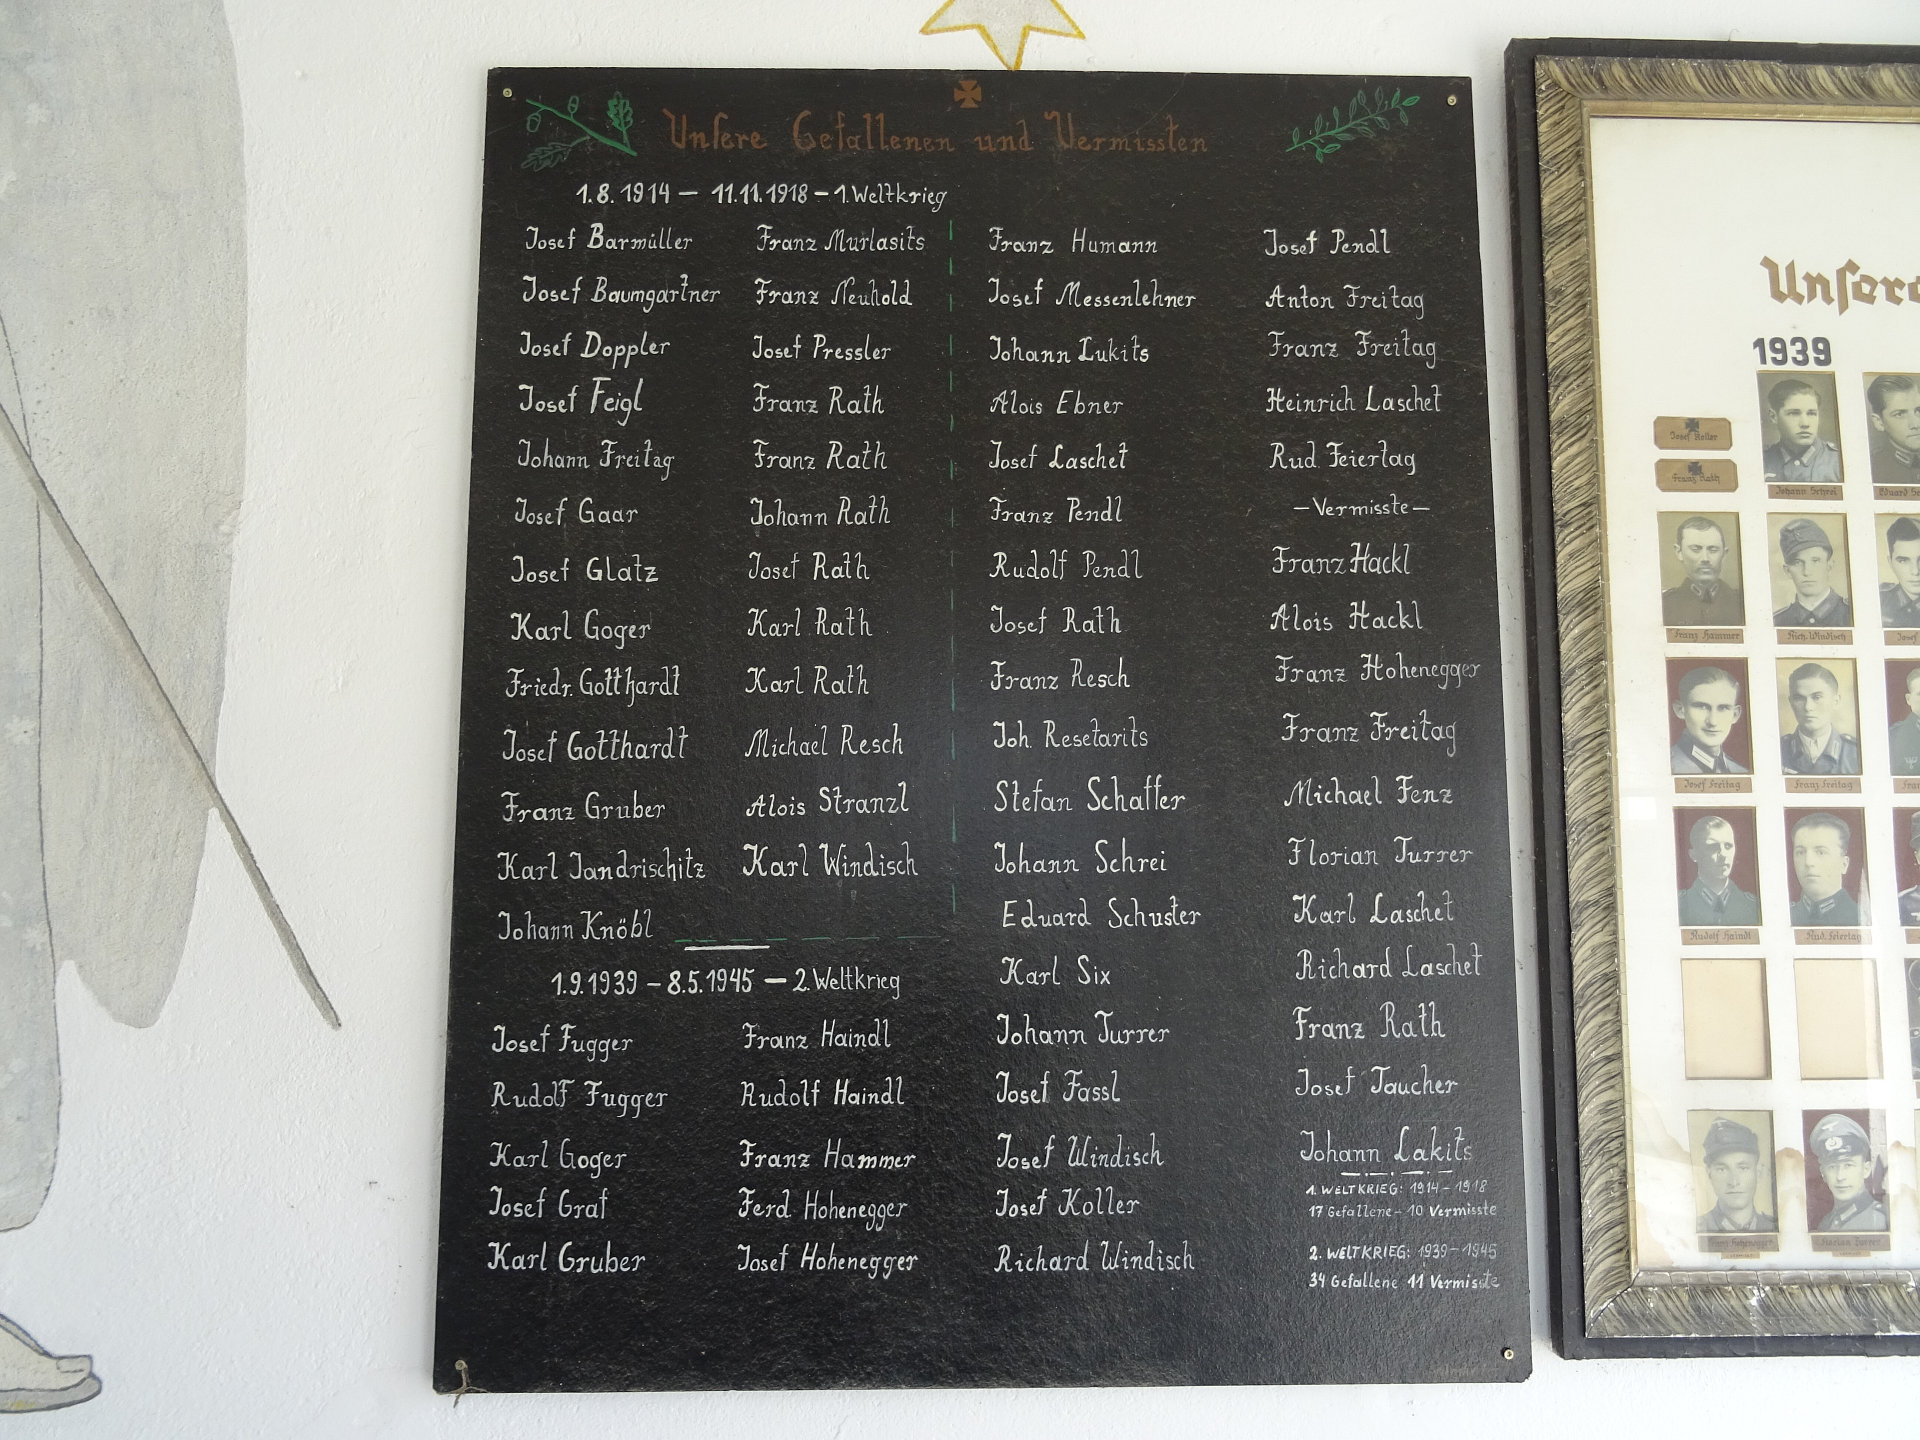 Unsere Gefallenen und Vermissten
1.8.1914 – 11.11.1918 – 1. Weltkrieg
Josef Barmüller
Josef Baumgartner
Josef Doppler
Josef Feigl
Johann Freitag
Josef Gaar
Josef Glatz
Karl Goger
Friedr. Gotthardt
Josef Gotthardt
Franz Gruber
Karl Jandrischitz
Johann Knöbl
Franz Murlasits
Franz Neuhold
Josef Pressler
Franz Rath
Franz Rath
Johann Rath
Josef Rath
Karl Rath
Karl Rath
Michael Resch
Alois Stranzl
Karl Windisch
1.9.1939 – 8.5.1945 – 2. Weltkrieg
Josef Fugger
Rudolf Fugger
Karl Goger
Josef Graf
Karl Gruber
Franz Haindl
Rudolf Haindl
Franz Hammer
Ferd. Hohenegger
Josef Hohenegger
Franz Humann
Josef Messenlehner
Johann Lukits
Alois Ebner
Josef Laschet
Franz Pendl
Rudolf Pendl
Josef Rath
Franz Resch
Joh. Resetarits
Stefan Schaffer
Johann Schrei
Eduard Schuster
Karl Six
Johann Jurrer
Josef Fassl
Josef Windisch
Josef Koller
Richard Windisch
Josef Pendl
Anton Freitag
Franz Freitag
Heinrich Laschet
Rud. Feiertag
– Vermisste –
Franz Hackl
Alois Hackl
Franz Hohenegger
Franz Freitag
Michael Fenz
Florian Jurrer
Karl Laschet
Richard Laschet
Franz Rath
Josef Taucher
Johann Lakits
1. WELTKRIEG: 1914 – 1918
17 Gefallene – 10 Vermisste
2. WELTKRIEG: 1939 – 1945
34 Gefallene 11 Vermisste
Unsere
1939
Josef Koller
Franz Rath
Johann Schrei
Eduard
Franz Hammer
Rich. Windisch
Josef
Josef Freitag
Franz Freitag
Rudolf Haindl
Rud. Feiertag
Franz Hohenegger
Florian Jurrer